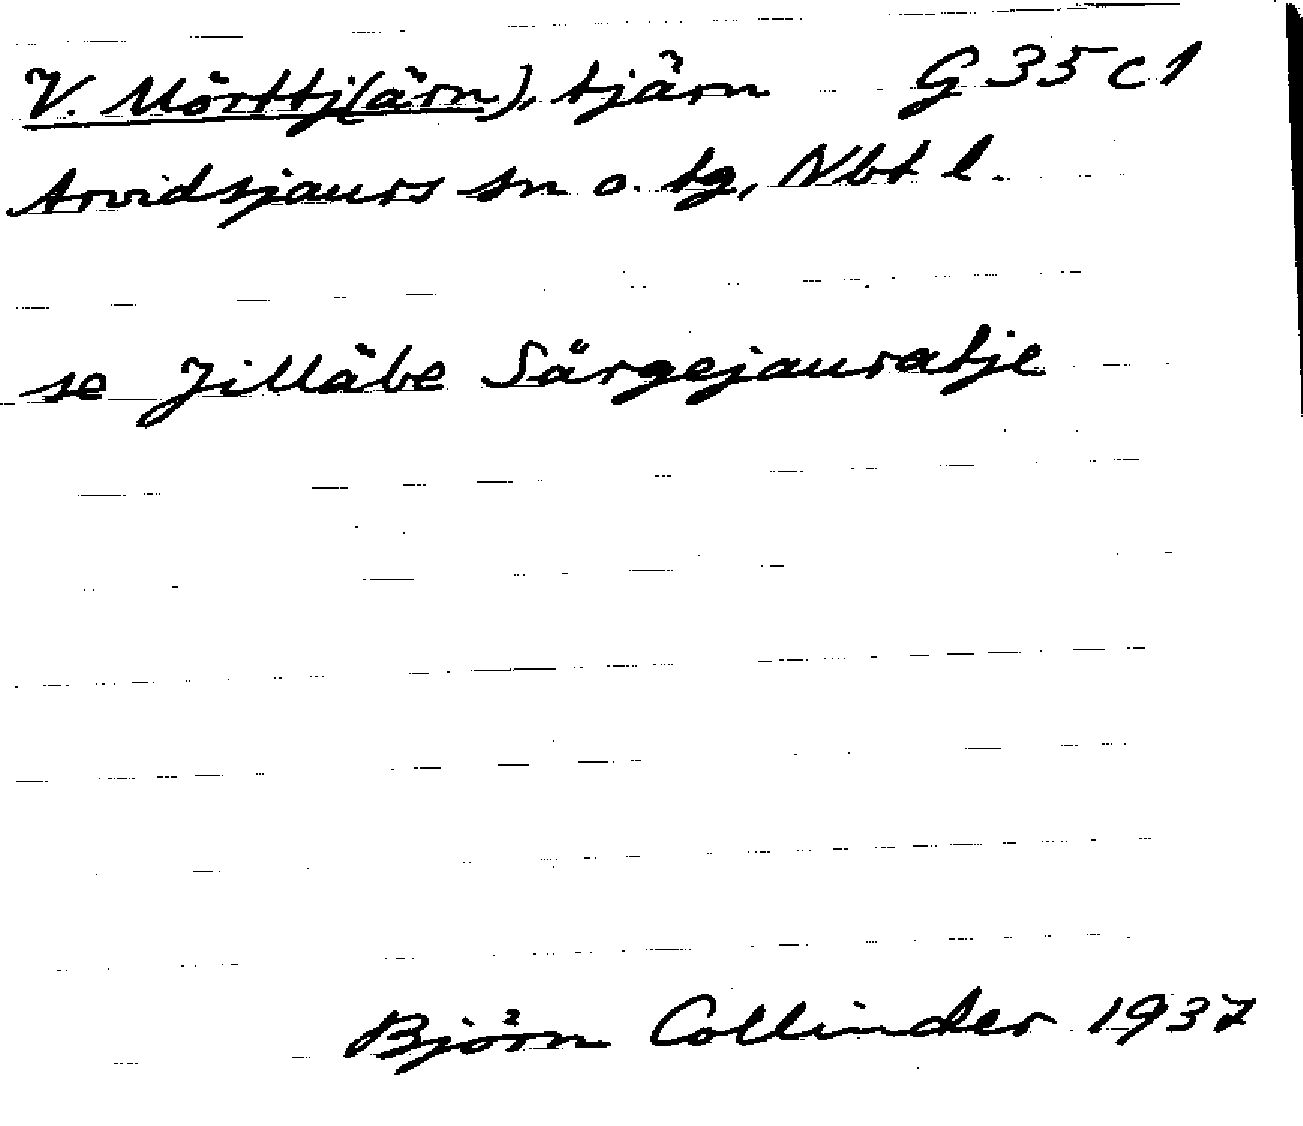 V. Mörttj(ärn), tjärn G 35 c 1
Arvidsjaurs sn o. tg, Nbt l.
se Jilläbe Särgejauratje
Björn Collinder 1937